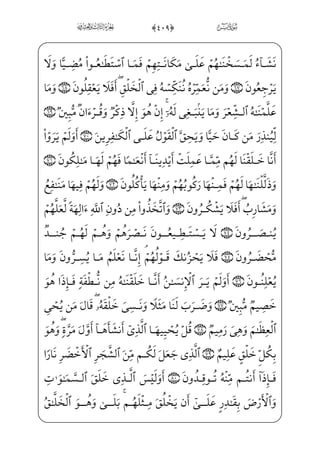 ﴿٤٠٩﴾
نَشَآءُ لَمَسَخْنَٰهُمْ عَلَىٰ مَكَانَتِهِمْ فَمَا ٱسْتَطَٰعُوا۟ مُضِيًّا وَلَا
يَرْجِعُونَ ۝ وَمَن نُّعَمِّرْهُ نُنَكِّسْهُ فِى ٱلْخَلْقِ ۖ أَفَلَا يَعْقِلُونَ ۝ وَمَا
عَلَّمْنَٰهُ ٱلشِّعْرَ وَمَا يَنۢبَغِى لَهُۥٓ ۚ إِنْ هُوَ إِلَّا ذِكْرٌ وَقُرْءَانٌ مُّبِينٌ ۝
لِّيُنذِرَ مَن كَانَ حَيًّا وَيَحِقَّ ٱلْقَوْلُ عَلَى ٱلْكَٰفِرِينَ ۝ أَوَلَمْ يَرَوْا۟
أَنَّا خَلَقْنَا لَهُم مِّمَّا عَمِلَتْ أَيْدِينَآ أَنْعَٰمًا فَهُمْ لَهَا مَٰلِكُونَ ۝
وَذَلَّلْنَٰهَا لَهُمْ فَمِنْهَا رَكُوبُهُمْ وَمِنْهَا يَأْكُلُونَ ۝ وَلَهُمْ فِيهَا مَنَٰفِعُ
وَمَشَارِبُ ۖ أَفَلَا يَشْكُرُونَ ۝ وَٱتَّخَذُوا۟ مِن دُونِ ٱللَّهِ ءَالِهَةً لَّعَلَّهُمْ
يُنصَرُونَ ۝ لَا يَسْتَطِيعُونَ نَصْرَهُمْ وَهُمْ لَهُمْ جُندٌ
مُّحْضَرُونَ ۝ فَلَا يَحْزُنكَ قَوْلُهُمْ ۘ إِنَّا نَعْلَمُ مَا يُسِرُّونَ وَمَا
يُعْلِنُونَ ۝ أَوَلَمْ يَرَ ٱلْإِنسَٰنُ أَنَّا خَلَقْنَٰهُ مِن نُّطْفَةٍ فَإِذَا هُوَ
خَصِيمٌ مُّبِينٌ ۝ وَضَرَبَ لَنَا مَثَلًا وَنَسِىَ خَلْقَهُۥ ۖ قَالَ مَن يُحْىِ
ٱلْعِظَٰمَ وَهِىَ رَمِيمٌ ۝ قُلْ يُحْيِيهَا ٱلَّذِىٓ أَنشَأَهَآ أَوَّلَ مَرَّةٍ ۖ وَهُوَ
بِكُلِّ خَلْقٍ عَلِيمٌ ۝ ٱلَّذِى جَعَلَ لَكُم مِّنَ ٱلشَّجَرِ ٱلْأَخْضَرِ نَارًا
فَإِذَآ أَنتُم مِّنْهُ تُوقِدُونَ ۝ أَوَلَيْسَ ٱلَّذِى خَلَقَ ٱلسَّمَٰوَٰتِ
وَٱلْأَرْضَ بِقَٰدِرٍ عَلَىٰٓ أَن يَخْلُقَ مِثْلَهُم ۚ بَلَىٰ وَهُوَ ٱلْخَلَّٰقُ